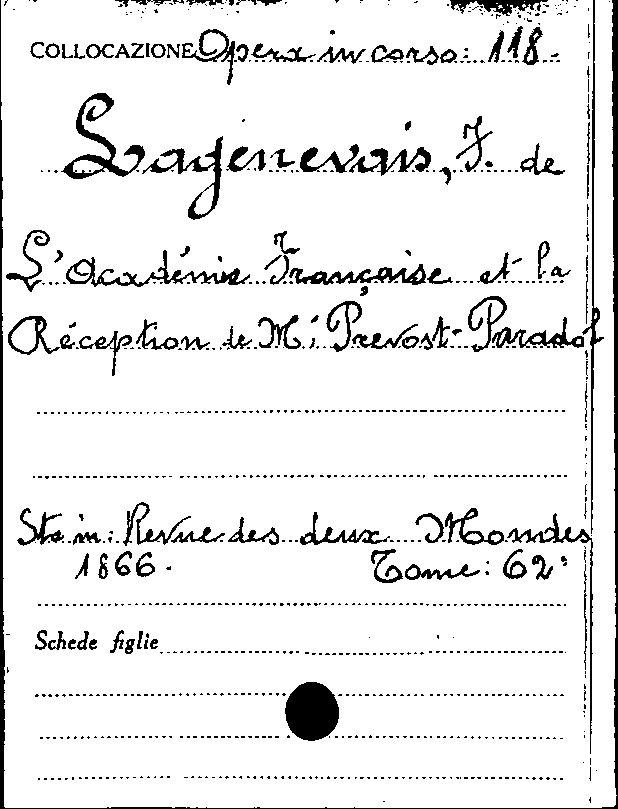 COLLOCAZIONE Opera in corso: 118.
Lagenevais, F. de
L'Académie Française et la
Réception de M: Prevost-Paradol
Sta in: Revue des deux Mondes
1866. Tome: 62°
Schede figlie